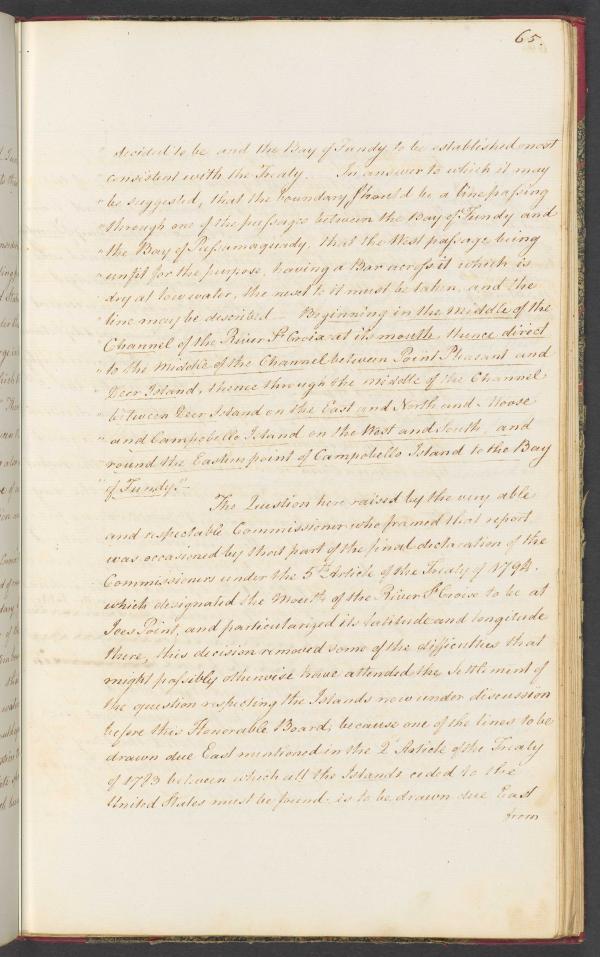 65.
decided to be and the Bay of Fundy to be established most
consistent with the Treaty — In answer to which it may
" be suggested, that the boundary should be a line passing
" through one of the passages between the Bay of Fundy and
" the Bay of Passamaquady, that the West passage being
" unfit for the purpose, having a Bar across it which is
" dry at low water, the next to it must be taken, and the
" line may be described — Beginning in the middle of the
" Channel of the River St Croix at its mouth, thence direct
" to the middle of the Channel between Point Pleasant and
" Deer Island, thence through the middle of the Channel
" between Deer Island on the East and North and Moose
" and Campobello Island on the West and South, and
" round the Eastern point of Campobello Island to the Bay
" of Fundy".
The Question here raised by the very able
and respectable Commissioner who framed that report
was occasioned by that part of the final declaration of the
Commissioners under the 5th Article of the Treaty of 1794.
which designated the Mouth of the River St Croix to be at
Joes Point, and particularized its latitude and longitude
there, this decision removed some of the difficulties that
might possibly otherwise have attended the Settlement of
the question respecting the Islands now under discussion
before this Honorable Board, because one of the lines to be
drawn due East mentioned in the 2d Article of the Treaty
of 1783 between which all the Islands ceded to the
United States must be found is to be drawn due East
from